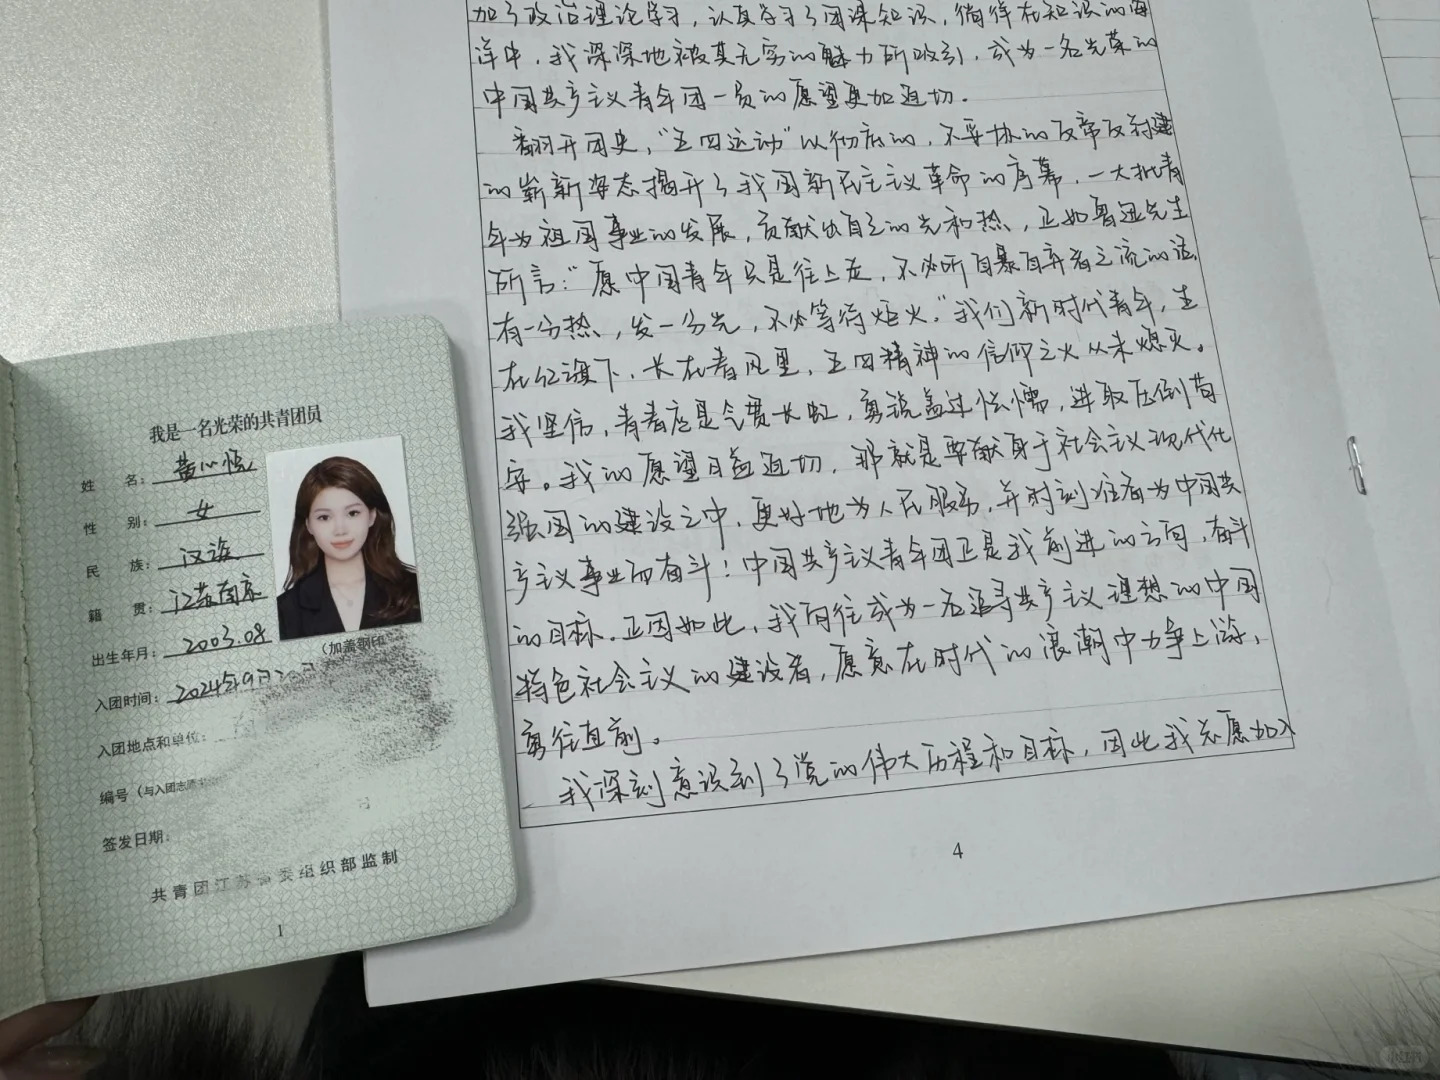 我是一名光荣的共青团员
姓 名:
性 别: 女
民 族: 汉族
籍 贯: 江苏南京
出生年月: 2003.08
(加盖钢印
入团时间: 2024年9月
入团地点和单位:
编号(与入团志愿
签发日期:
共青团江苏省委组织部监制
1
加了政治理论学习,认真学习了团课知识,徜徉在知识的海
洋中,我深深地被其无穷的魅力所吸引,成为一名光荣的
中国共产主义青年团一员的愿望更加迫切.
翻开团史,"五四运动"以彻底的,不妥协的反帝反封建
的崭新姿态揭开了我国新民主主义革命的序幕,一大批青
年为祖国事业的发展,贡献出自己的光和热,正如鲁迅先生
所言:"愿中国青年只是往上走,不必听自暴自弃者之流的话,
有一分热,发一分光,不必等待炬火."我们新时代青年,生
在红旗下,长在春风里,五四精神的信仰之火从未熄灭。
我坚信,青春应是气贯长虹,勇锐盖过怯懦,进取压倒苟
安。我的愿望日益迫切,那就是要献身于社会主义现代化
强国的建设之中,更好地为人民服务,并时刻准备为中国共
产主义事业而奋斗!中国共产主义青年团正是我前进的方向,奋斗
的目标.正因如此,我向往成为一名追寻共产主义理想的中国
特色社会主义的建设者,愿意在时代的浪潮中力争上游,
勇往直前。
我深刻意识到了党的伟大历程和目标,因此我志愿加入
4
小红书